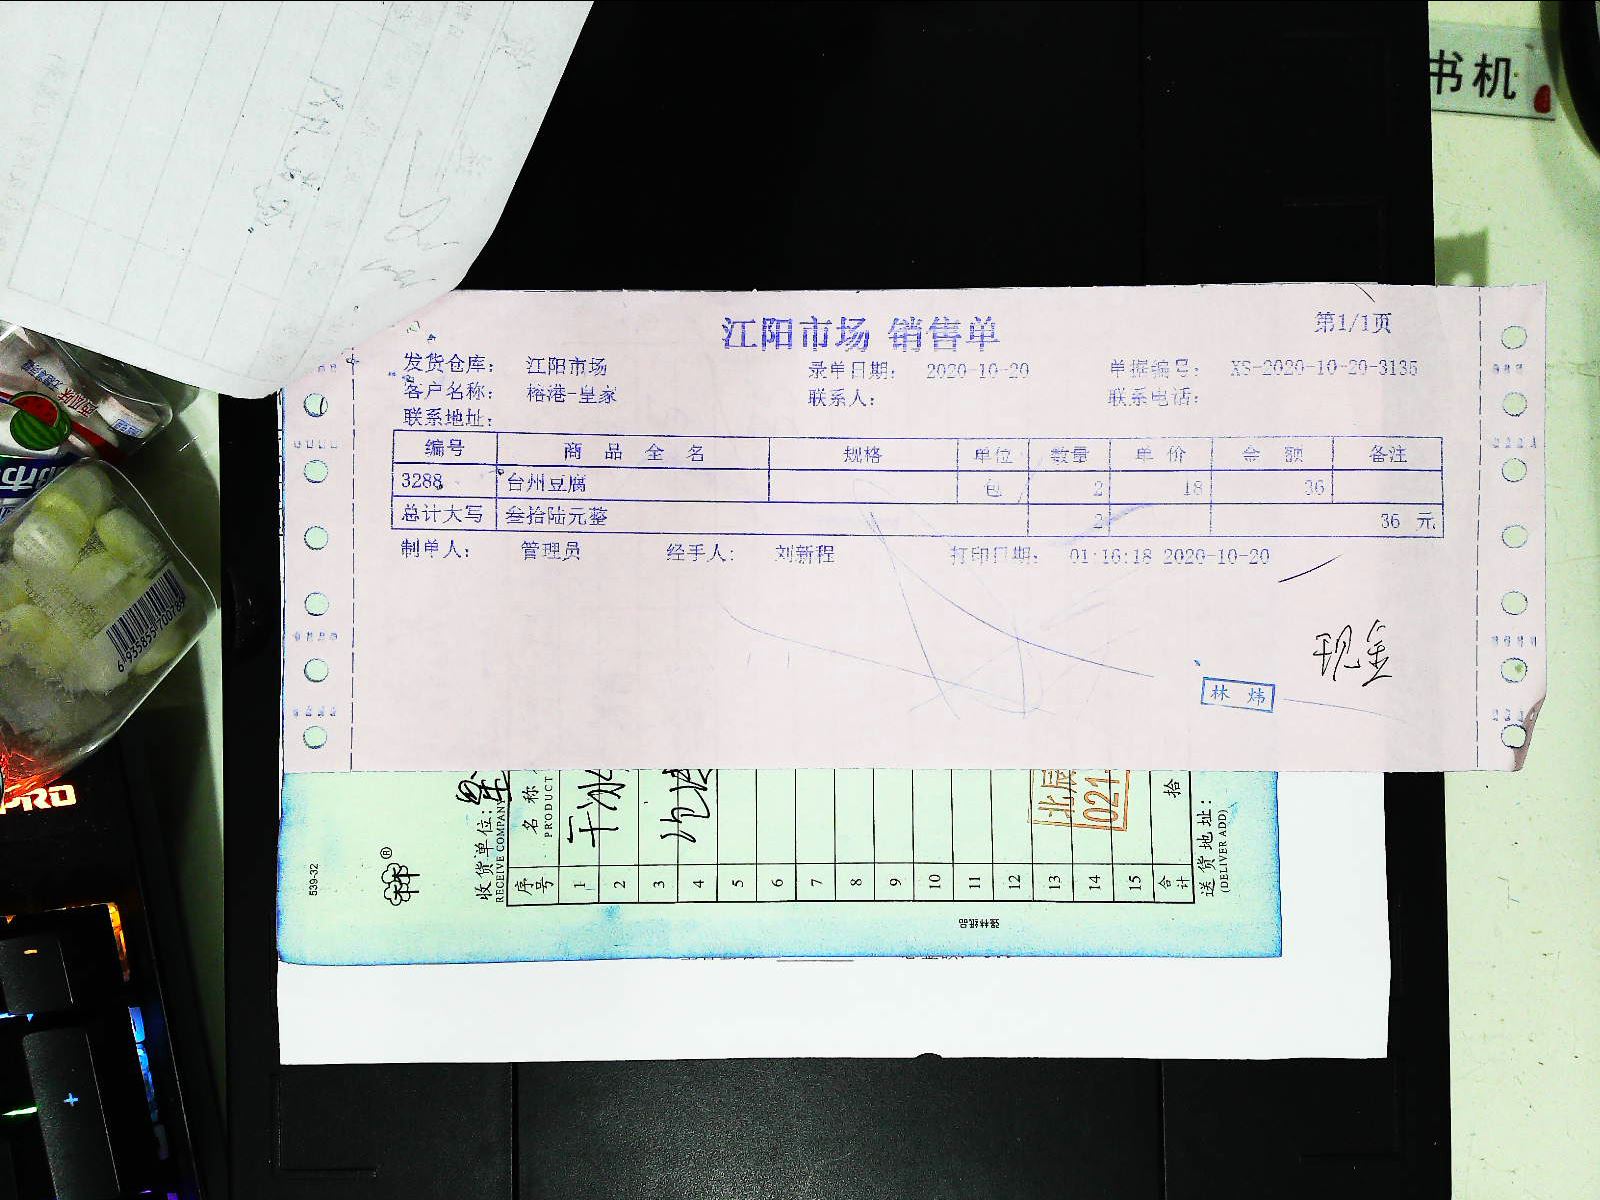 书机
江阳市场 销售单
第1/1页
发货仓库： 江阳市场 录单日期： 2020-10-20 单据编号： XS-2020-10-20-3135
客户名称： 榕港-皇家 联系人： 联系电话：
联系地址：
编号 商品全名 规格 单位 数量 单价 金额 备注
3288 台州豆腐 包 2 18 36
总计大写 叁拾陆元整 2 36 元
制单人： 管理员 经手人： 刘新程 打印日期： 01:16:18 2020-10-20
现金
林炜
6935855700789
PRO
539-32
收货单位：
RECEIVE COMPANY
序号 名称
PRODUCT
1 干冰
2
3
4
5
6
7
8
9
10
11
12
13
14
15
合计 拾
送货地址：
(DELIVER ADD)
北辰
021
强林纸品